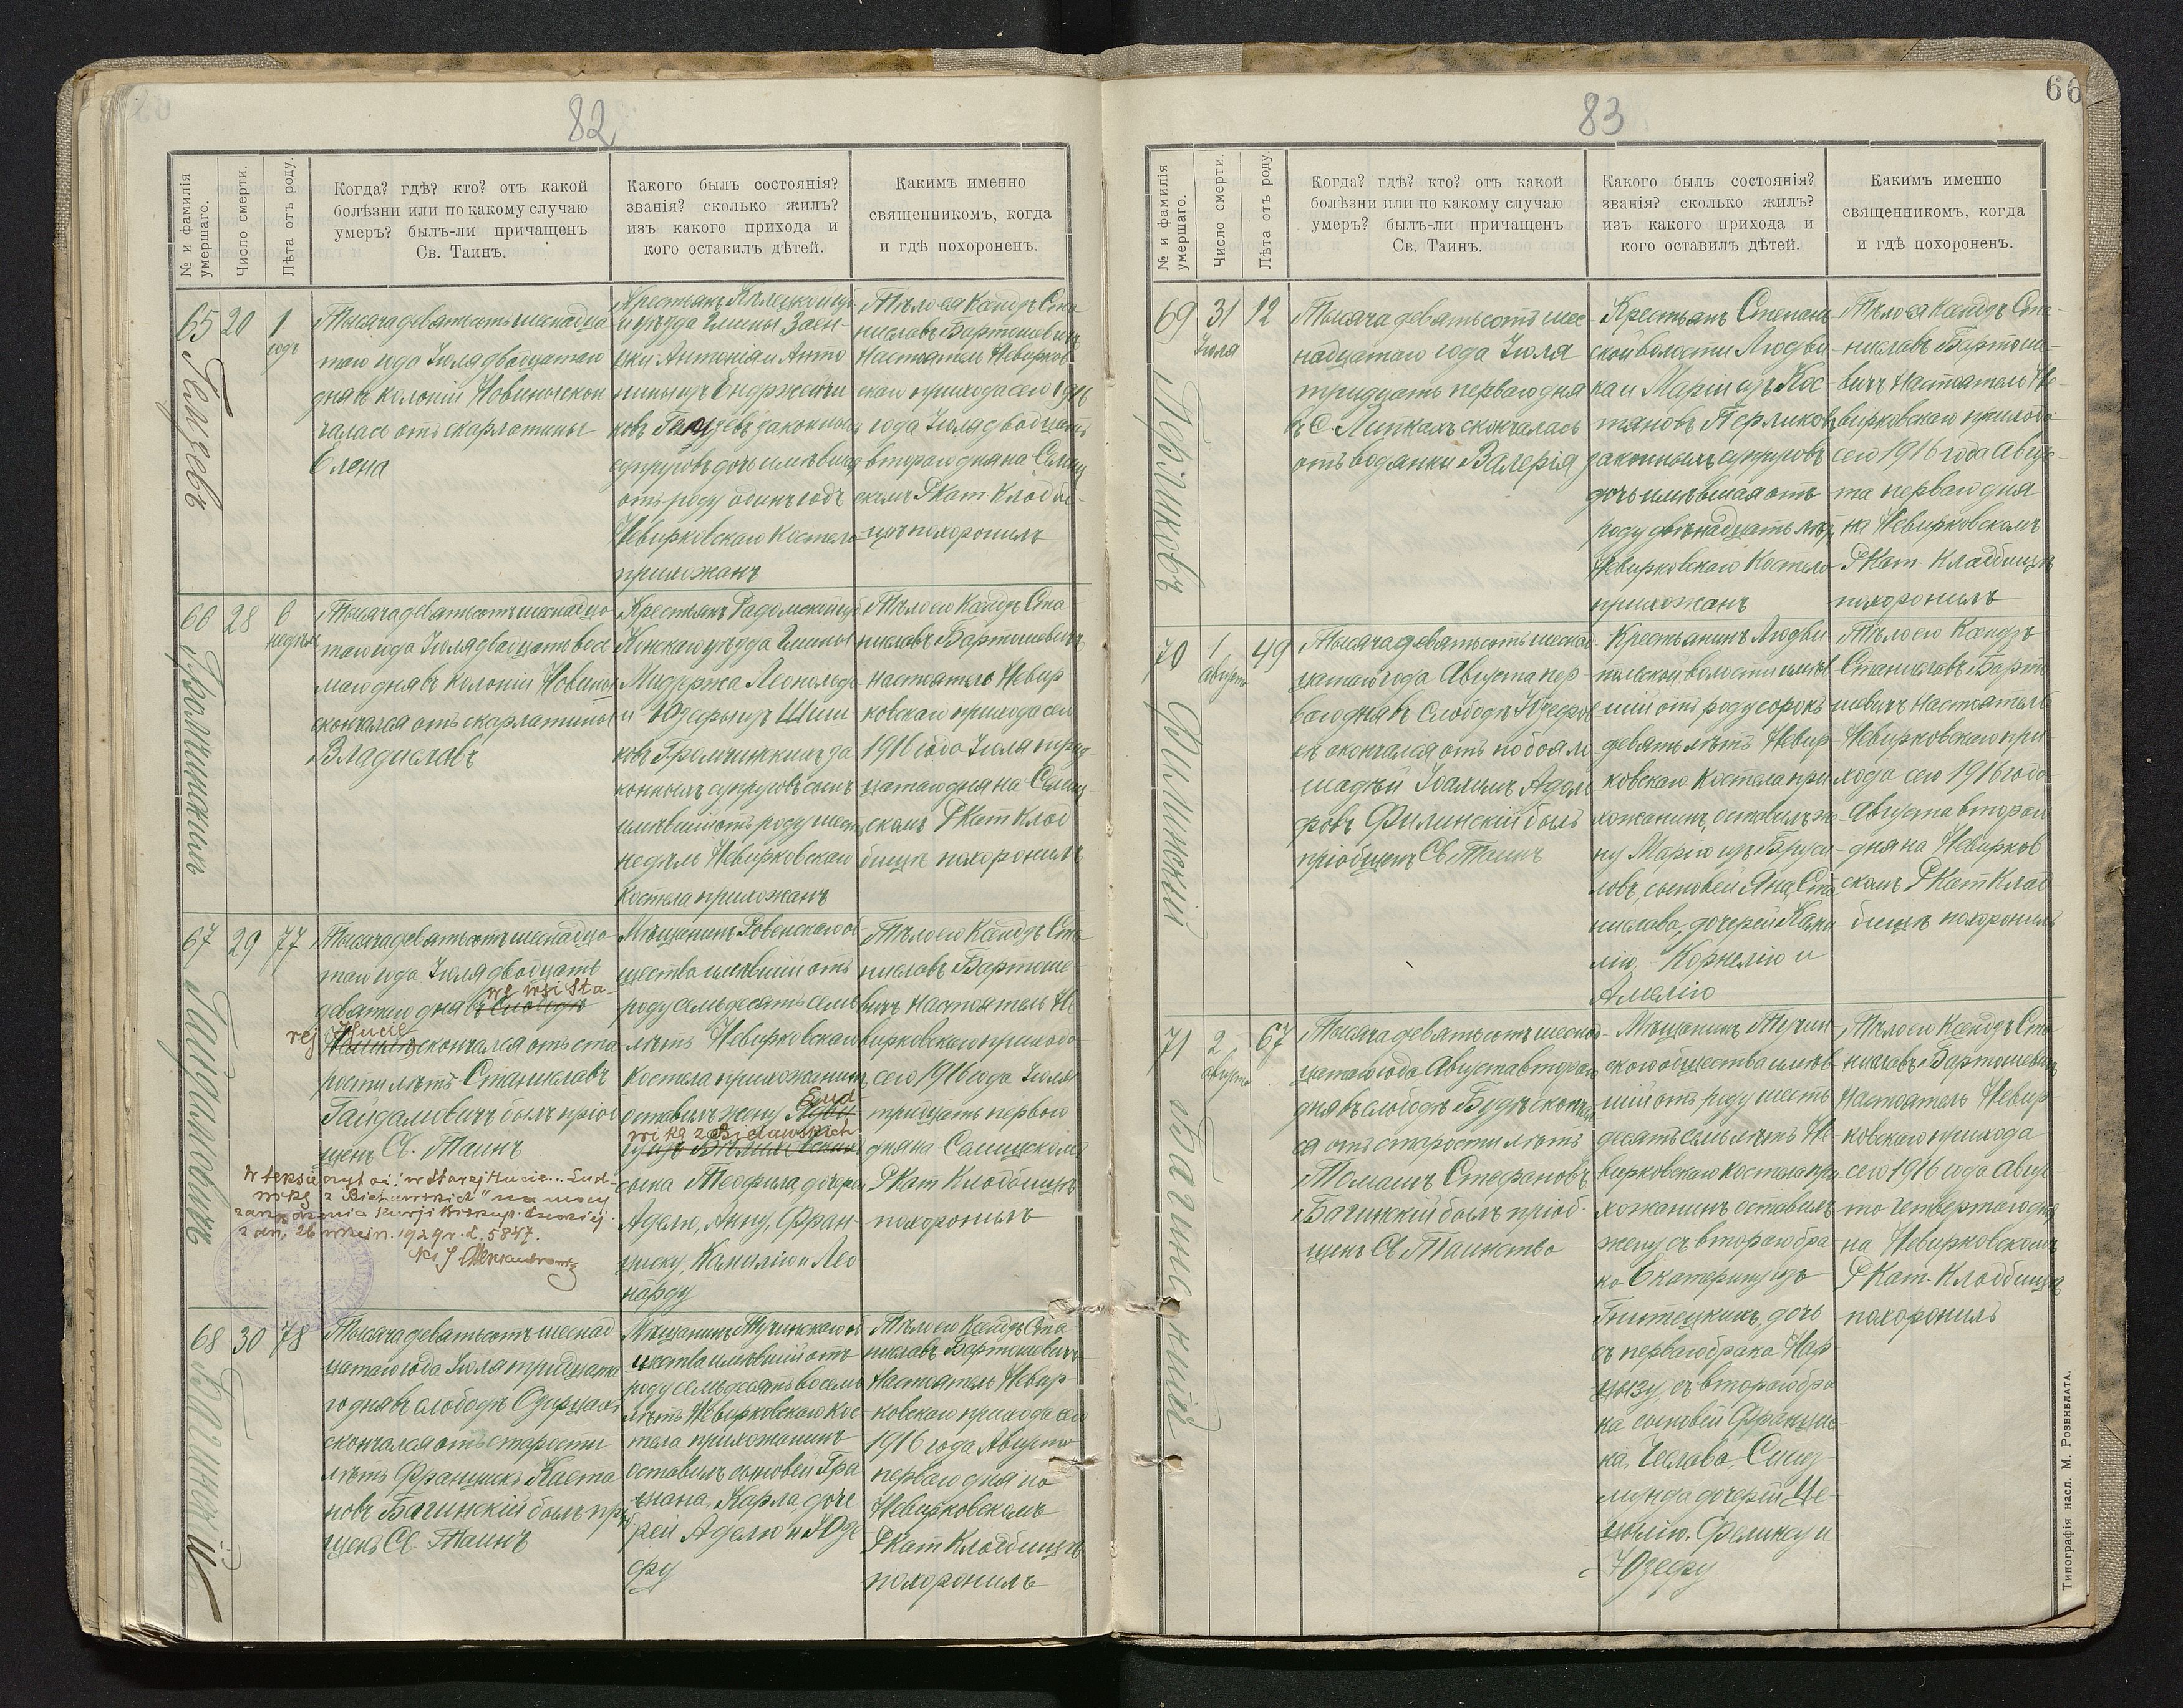 82
№ и фамилія умершаго.
Число смерти.
Лѣта отъ роду.
Когда? гдѣ? кто? отъ какой
болѣзни или по какому случаю
умеръ? былъ-ли причащенъ
Св. Таинъ.
Какого былъ состоянія?
званія? сколько жилъ?
изъ какого прихода и
кого оставилъ дѣтей.
Какимъ именно
священникомъ, когда
и гдѣ похороненъ.
65
20
1
годъ
Тысяча девятьсотъ шестнадца
таго года Іюля двадцатаго
дня въ колоніи
отъ скарлатины
Елена
Антонія и Анто
супруговъ дочь имѣвшая
отъ роду одинъ годъ
Невирковскаго Костела
прихожанъ
Тѣло ея Ксендзъ Ста
ниславъ Бартошевичъ
Настоятель Невирков
скаго прихода сего 1916
года Іюля двадцать
второго дня на
Р Кат Кладби
щѣ похоронилъ
66
28
6
недѣль
Тысяча девятьсотъ шестнадца
таго года Іюля двадцать вось
маго дня въ колоніи
скончался отъ скарлатины
Владиславъ
Крестьянъ Радомской губ
уѣзда Гмины
законныхъ супруговъ сынъ
имѣвшій отъ роду шесть
недѣль Невирковскаго
Костела прихожанъ
Тѣло его Ксендзъ Ста
ниславъ Бартошевичъ
Настоятель Невир
ковскаго прихода сего
1916 года Іюля трид
цатаго дня на
Р Кат Клад
бищѣ похоронилъ
67
29
77
Гайдамовичъ
Тысяча девятьсотъ шестнадца
таго года Іюля двадцать
девятаго дня въ
we wsi Sta-
rej Hucie
скончался отъ ста
рости лѣтъ Станиславъ
Гайдамовичъ былъ пріоб
щенъ Св. Таинъ
W tekście czytać: "w Starej Hucie... Lud-
wikę z Bielawskich" na mocy
zarządzenia Kurji Biskup. Łuckiej
z dn. 26 wrześn. 1929 r. L. 5847.
Мѣщанинъ Ровенскаго об
щества имѣвшій отъ
роду семьдесятъ семь
лѣтъ Невирковскаго
Костела прихожанинъ
оставилъ жену
Lud
wikę z Bielawskich
сына Теофила, дочерей
Аделю, Анну, Фран-
циску, Камилію и Лео
нарду
Тѣло его Ксендзъ Ста
ниславъ Бартоше
вичъ Настоятель Не
вирковскаго прихода
сего 1916 года Іюля
тридцать перваго
дня на
Р Кат Кладбищѣ
похоронилъ
68
30
78
Багинскій
Тысяча девятьсотъ шестнад
цатаго года Іюля тридцата
го дня въ слободѣ
скончался отъ старости
лѣтъ Францишекъ Каета
новъ Багинскій былъ пріоб
щенъ Св. Таинъ
Мѣщанинъ Тучинскаго об
щества имѣвшій отъ
роду семьдесятъ восемь
лѣтъ Невирковскаго Кос
тела прихожанинъ
оставилъ сыновей Гра
ціана, Карла доче
рей Аделю и Юзе
фу
Тѣло его Ксендзъ Ста
ниславъ Бартошевичъ
Настоятель Невир-
ковскаго прихода сего
1916 года Августа
перваго дня на
Невирковскомъ
Р Кат Кладбищѣ
похоронилъ
83
66
№ и фамилія умершаго.
Число смерти.
Лѣта отъ роду.
Когда? гдѣ? кто? отъ какой
болѣзни или по какому случаю
умеръ? былъ-ли причащенъ
Св. Таинъ.
Какого былъ состоянія?
званія? сколько жилъ?
изъ какого прихода и
кого оставилъ дѣтей.
Какимъ именно
священникомъ, когда
и гдѣ похороненъ.
69
31
Іюля
12
Перликовъ
Тысяча девятьсотъ шес
надцатаго года Іюля
тридцать перваго дня
въ С. Липкахъ скончалась
отъ водянки Валерія
Крестьянъ Степан
ской волости Людви
ка и Маріи изъ Кос
тяновъ Перликовъ
законныхъ супруговъ
дочь имѣвшая отъ
роду двѣнадцать лѣтъ
Невирковскаго Костела
прихожанъ
Тѣло ея Ксендзъ Ста-
ниславъ Бартоше
вичъ Настоятель Не-
вирковскаго прихода
сего 1916 года Авгус-
та перваго дня
на Невирковскомъ
Р Кат. Кладбищѣ
похоронилъ
70
1
Августа
49
Филинскій
Тысяча девятьсотъ шестнад
цатаго года Августа пер
ваго дня въ Слободѣ Юзефов
кѣ скончался отъ побоя ло
шадей Іоахимъ Адоль
фовъ Филинскій былъ
пріобщенъ Св Таинъ
Крестьянинъ Людви
польской волости имѣв
шій отъ роду сорокъ
девять лѣтъ Невир
ковскаго Костела при
хожанинъ, оставилъ же
ну Марію изъ Бруси
ловъ, сыновей Яна, Ста
нислава, дочерей
лію, Корнелію и
Амелію
Тѣло его Ксендзъ
Станиславъ Барто
шевичъ Настоятель
Невирковскаго при
хода сего 1916 года
Августа второго
дня на Невирков
скомъ Р Кат Клад
бищѣ похоронилъ
71
2
Августа
67
Багинскій
Тысяча девятьсотъ шестнад
цатаго года Августа второго
дня въ слободѣ Будѣ скончал
ся отъ старости лѣтъ
Томашъ Стефановъ
Багинскій былъ пріоб
щенъ Св Таинства
Мѣщанинъ Тучин
скаго общества имѣв
шій отъ роду шесть
десятъ семь лѣтъ Не
вирковскаго Костела при
хожанинъ оставилъ
жену съ второго бра
ка Екатерину изъ
дочь
съ перваго брака Нар
цызу, съ второго бра
ка сыновей Францис
ка, Чеслава, Сигиз-
мунда дочерей Це-
цилію, Феликсу и
Юзефу
Тѣло его Ксендзъ Ста
ниславъ Бартошевичъ
Настоятель Невир
ковскаго прихода
сего 1916 года Авгус
та Четвертаго дня
на Невирковскомъ
Р Кат. Кладбищѣ
похоронилъ
Типографія насл. М. Розенблата.